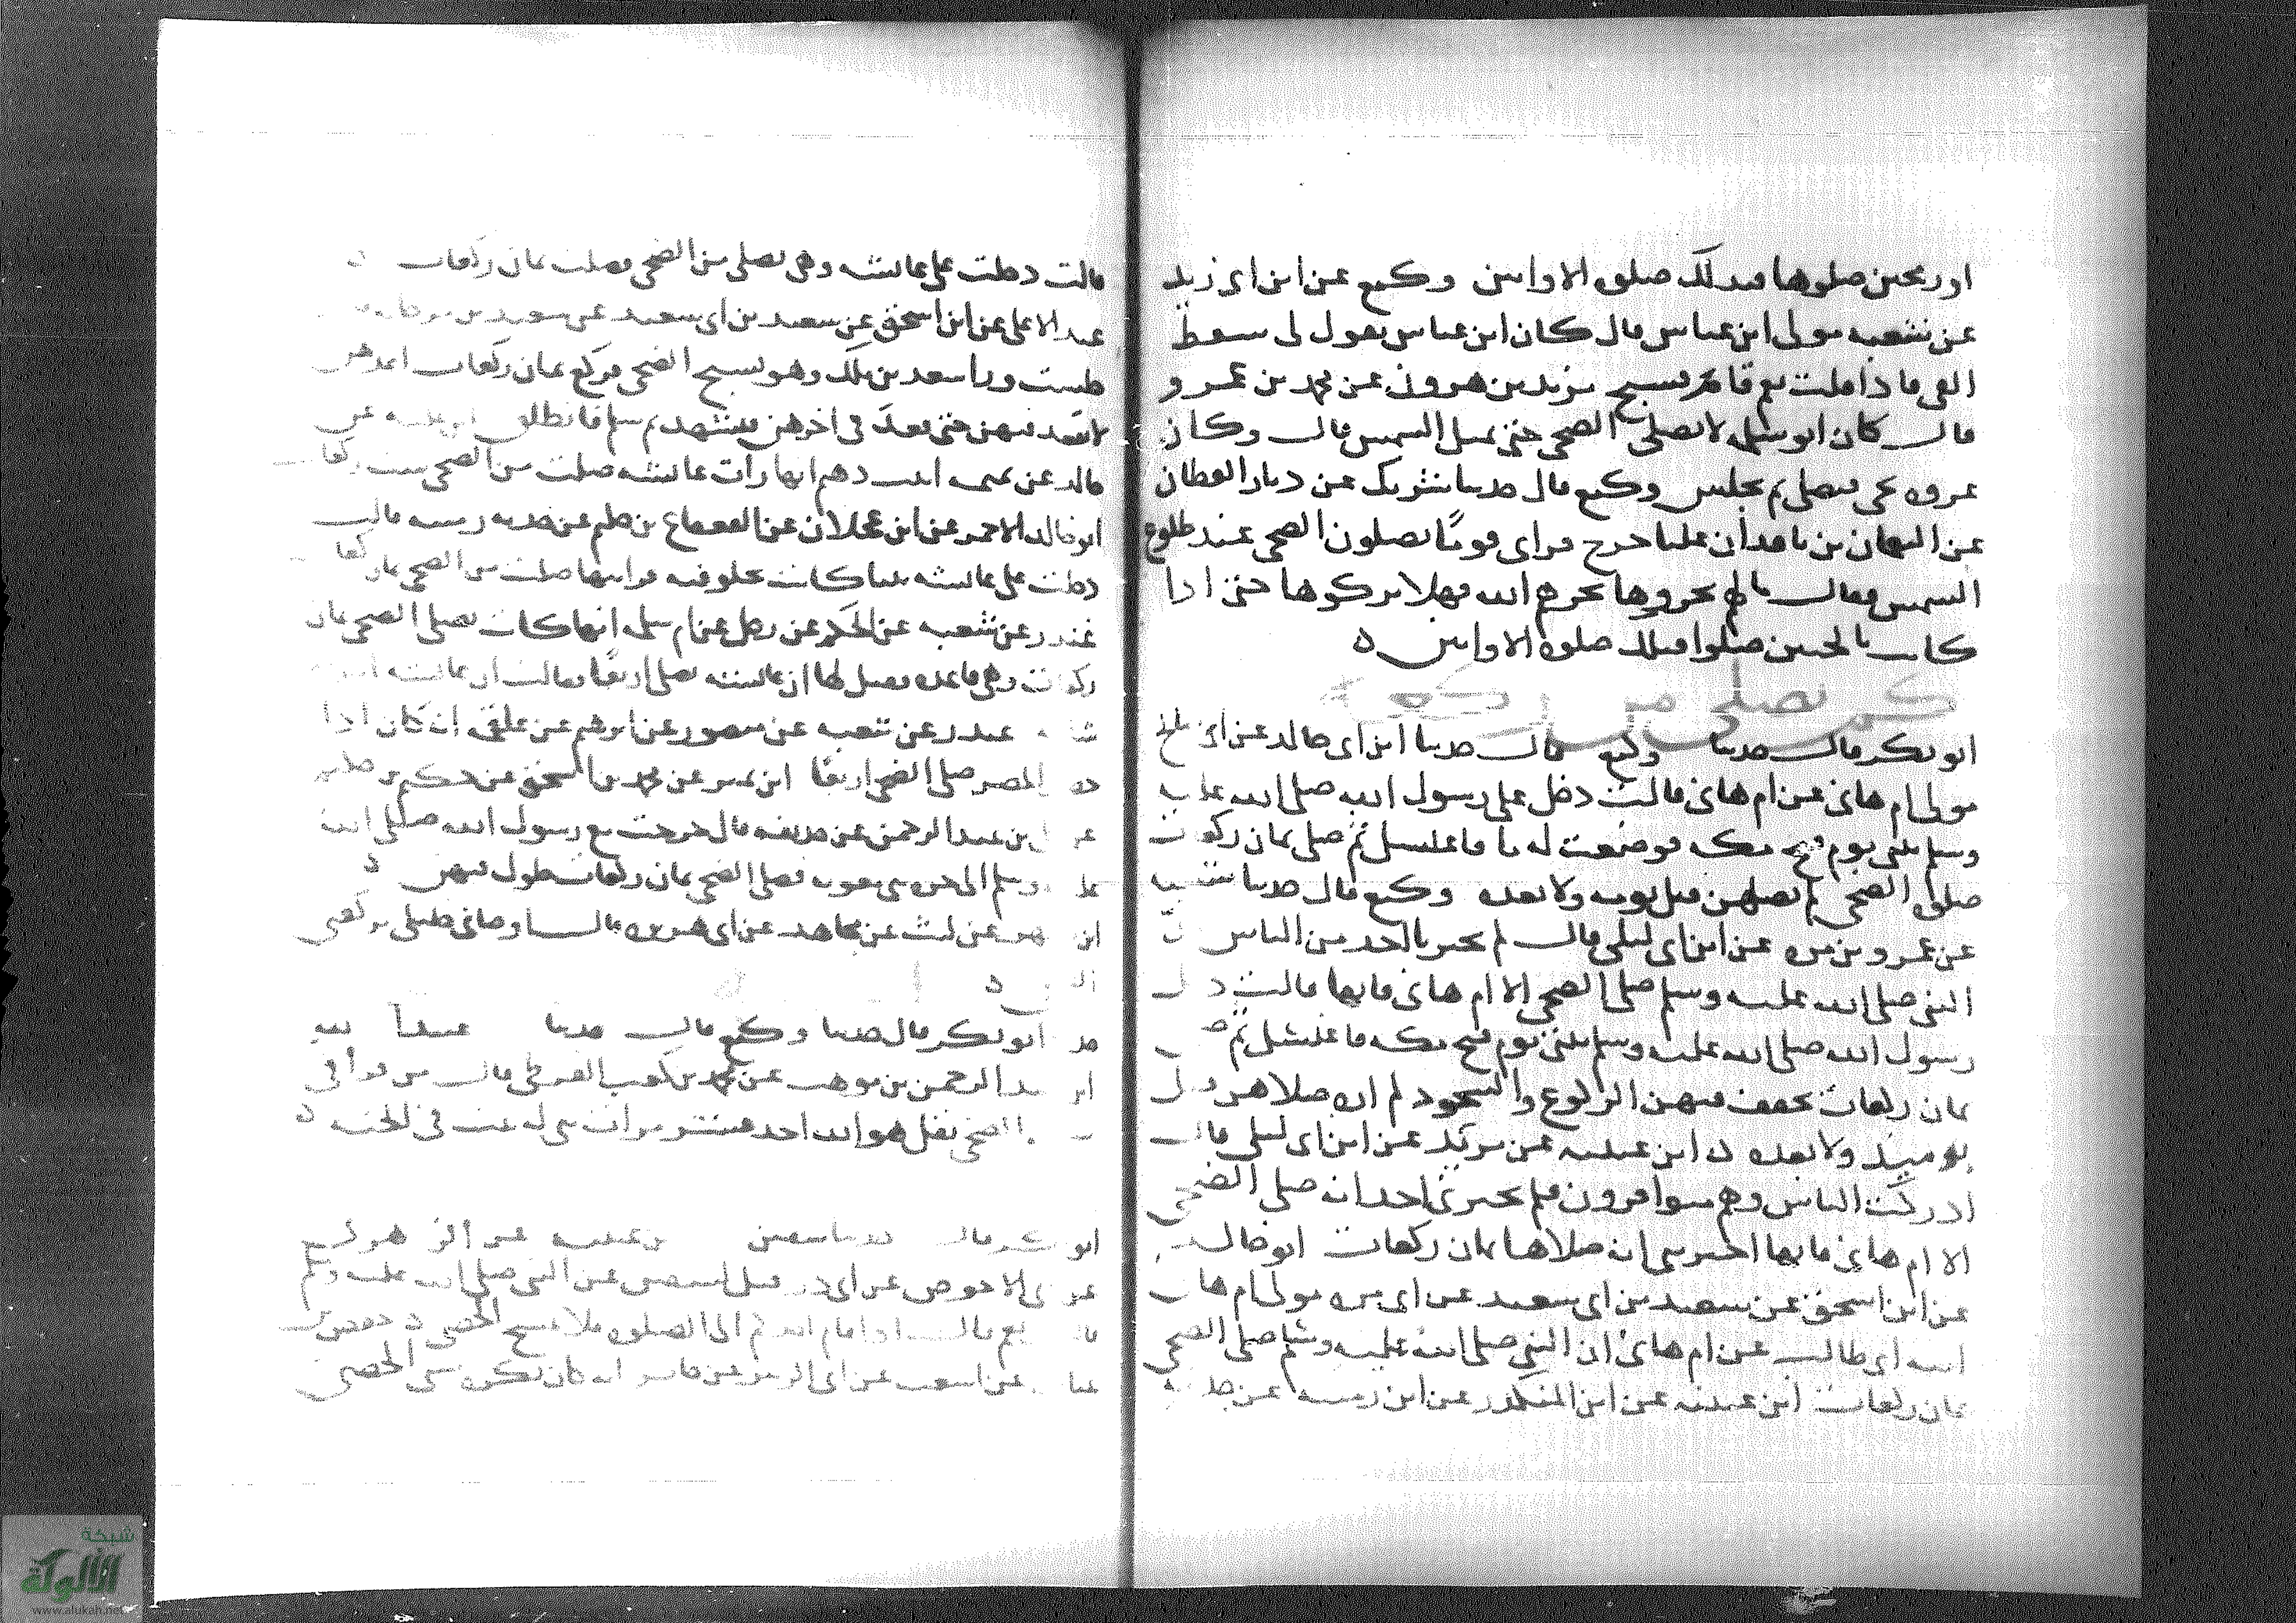 او رمحين صلوها فذلك صلوة الاوابين وكيع عن ابن ابي ذيب
عن شعبه مولى ابن عباس قال كان ابن عباس يقول لي سقط
الفي فاذا قلت نعم قام فسبح يزيد بن هرون عن محمد بن عمرو
قال كان ابو سلمه لا يصلي الضحى حتى تميل الشمس قال وكان
عروه يجي فيصلي ثم يجلس وكيع قال حدثنا شريك عن دثار القطان
عن النعمان بن نافد ان عليا خرج فراى قوما يصلون الضحى عند طلوع
الشمس فقال ما لهم نحروها نحرهم الله فهلا تركوها حتى اذا
كانت بالجبين صلوا فتلك صلوة الاوابين
كم يصلي من ركعة
ابو بكر قال حدثنا وكيع قال حدثنا ابن ابي خالد عن ابي صلح
مولى ام هاني عن ام هاني قالت دخل علي رسول الله صلى الله عليه
وسلم بيتي يوم فتح مكه فوضعت له ما فاغتسل ثم صلى ثمان ركعات
صلوة الضحى لم يصلهن قبل يومه ولا بعده وكيع قال حدثنا شعبه
عن عمرو بن مره عن ابن ابي ليلى قال لم يخبرنا احد من الناس ان
النبي صلى الله عليه وسلم صلى الضحى الا ام هاني فانها قالت دخل
رسول الله صلى الله عليه وسلم بيتي يوم فتح مكه فاغتسل ثم صلى
ثمان ركعات يخفف فيهن الركوع والسجود لم اره صلاهن قبل
يوميذ ولا بعده ابن عيينه عن يزيد عن ابن ابي ليلى قال
ادركت الناس وهم متوافرون فلم يخبرني احد انه صلى الضحى
الا ام هاني فانها اخبرتني انه صلاها ثمان ركعات ابو خالد
عن ابن اسحق عن سعيد بن ابي سعيد عن ابي مره مولى ام هاني
ابنه ابي طالب عن ام هاني ان النبي صلى الله عليه وسلم صلى الضحى
ثمان ركعات ابن عيينه عن ابن المنكدر عن ابن رميثه عن جدته
قالت دخلت على عائشه وهي تصلي من الضحى فصلت ثمان ركعات
عبد الاعلى عن ابن اسحق عن سعيد بن ابي سعيد عن سعيد بن مرجانه
جلست ورا سعد بن ملك وهو يسبح الضحى فركع ثمان ركعات اعدهن
لا يقعد فيهن حتى قعد في اخرهن فتشهد ثم سلم فانطلق عن
خالد عن دهم انها رات عائشه صلت من الضحى ست ركعات
ابو خالد الاحمر عن ابن عجلان عن القعقاع بن حكيم عن جدته رميثه قالت
دخلت على عائشه بيتا كانت تخلو فيه فرايتها صلت من الضحى ثمان ركعات
غندر عن شعبه عن الحكم عن رجل عن ام سلمه انها كانت تصلي الضحى ثمان
ركعات وهي قاعده فقيل لها ان عائشه تصلي اربعا فقالت ان عائشه امراه
شابه غندر عن شعبه عن منصور عن ابرهيم عن علقمه انه كان اذا
المصر صلى الضحى اربعا ابن نمير عن محمد بن اسحق عن حكيم بن حكيم
عن علي بن عبد الرحمن عن حذيفه قال خرجت مع رسول الله صلى الله
عليه وسلم الى حره بني معويه فصلى الضحى ثمان ركعات طول فيهن
ابن عن ليث عن مجاهد عن ابي هريره قال اوصاني خليلي بركعتي
الضحى
حدثنا ابو بكر قال حدثنا وكيع قال حدثنا عبيد الله
ابن عبد الرحمن بن موهب عن محمد بن كعب القرظي قال من قرا في
الضحى بقل هو الله احد عشر مرات بني له بيت في الجنه
ابو بكر قال حدثنا سفين بن عيينه عن الزهري
عن ابي الاحوص عن ابي ذر قيل لسفين عن النبي صلى الله عليه وسلم
قال نعم قال اذا قام احدكم الى الصلوه فلا يمسح الحصى
عن اشعث عن ابي الزبير عن جابر انه كان يكره مس الحصى
شبكة
الألوكة
www.alukah.net